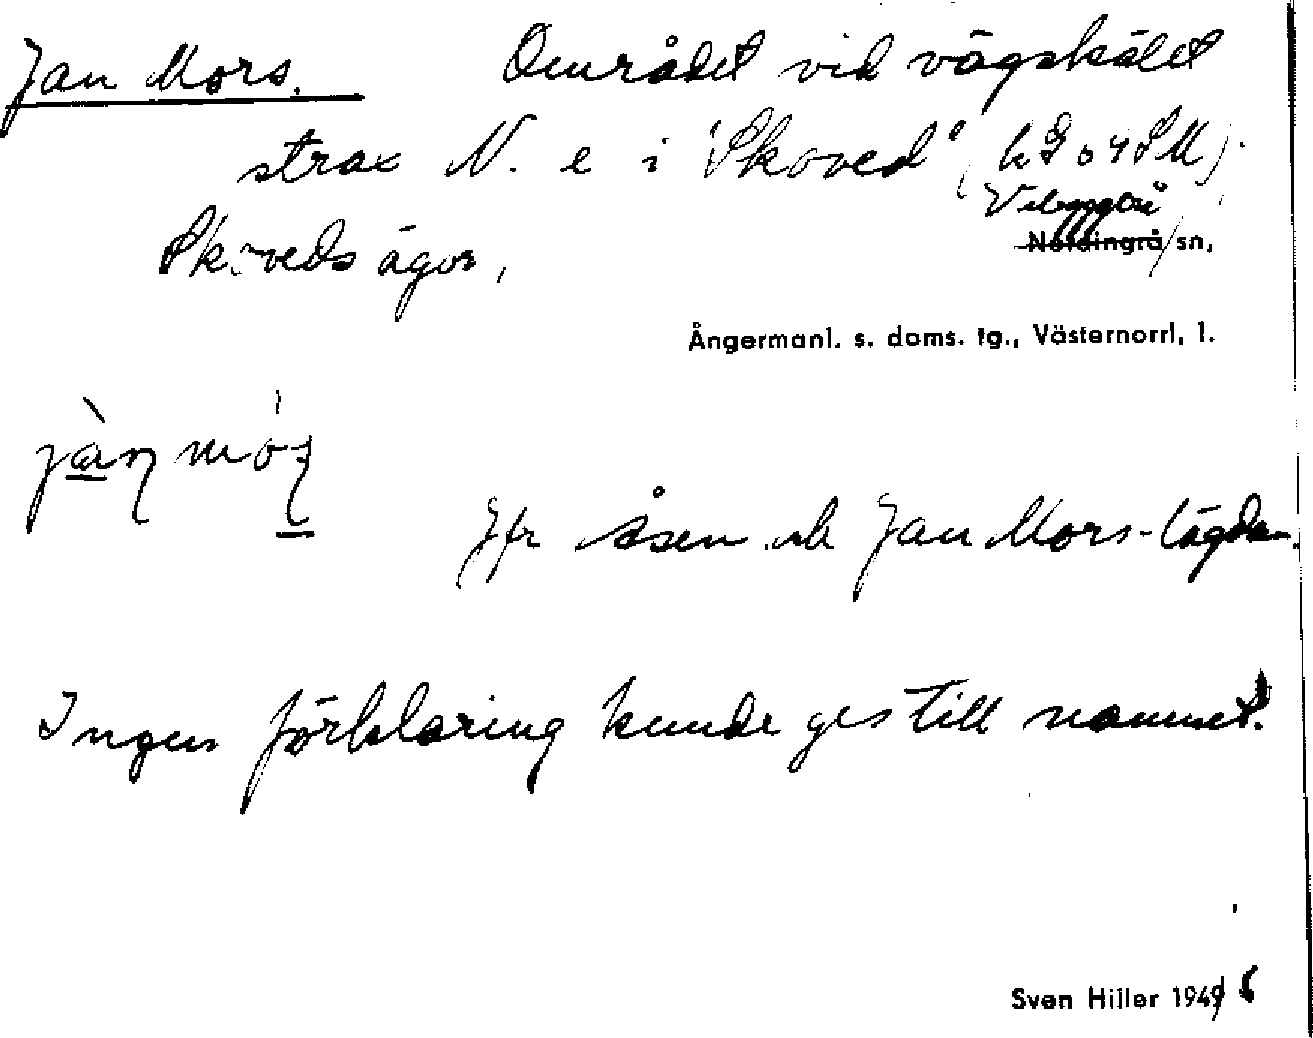 Jan Mors. Området vid vägskälet
strax N. e i "Skoved" (h G o 4 S M).
Skoveds ägor,
Vibyggerå
Nordingrå sn,
Ångermanl. s. doms. tg., Västernorrl. l.
Jfr åsen och Jan Mors-lägdan.
Ingen förklaring kunde ges till namnet.
Sven Hiller 1946